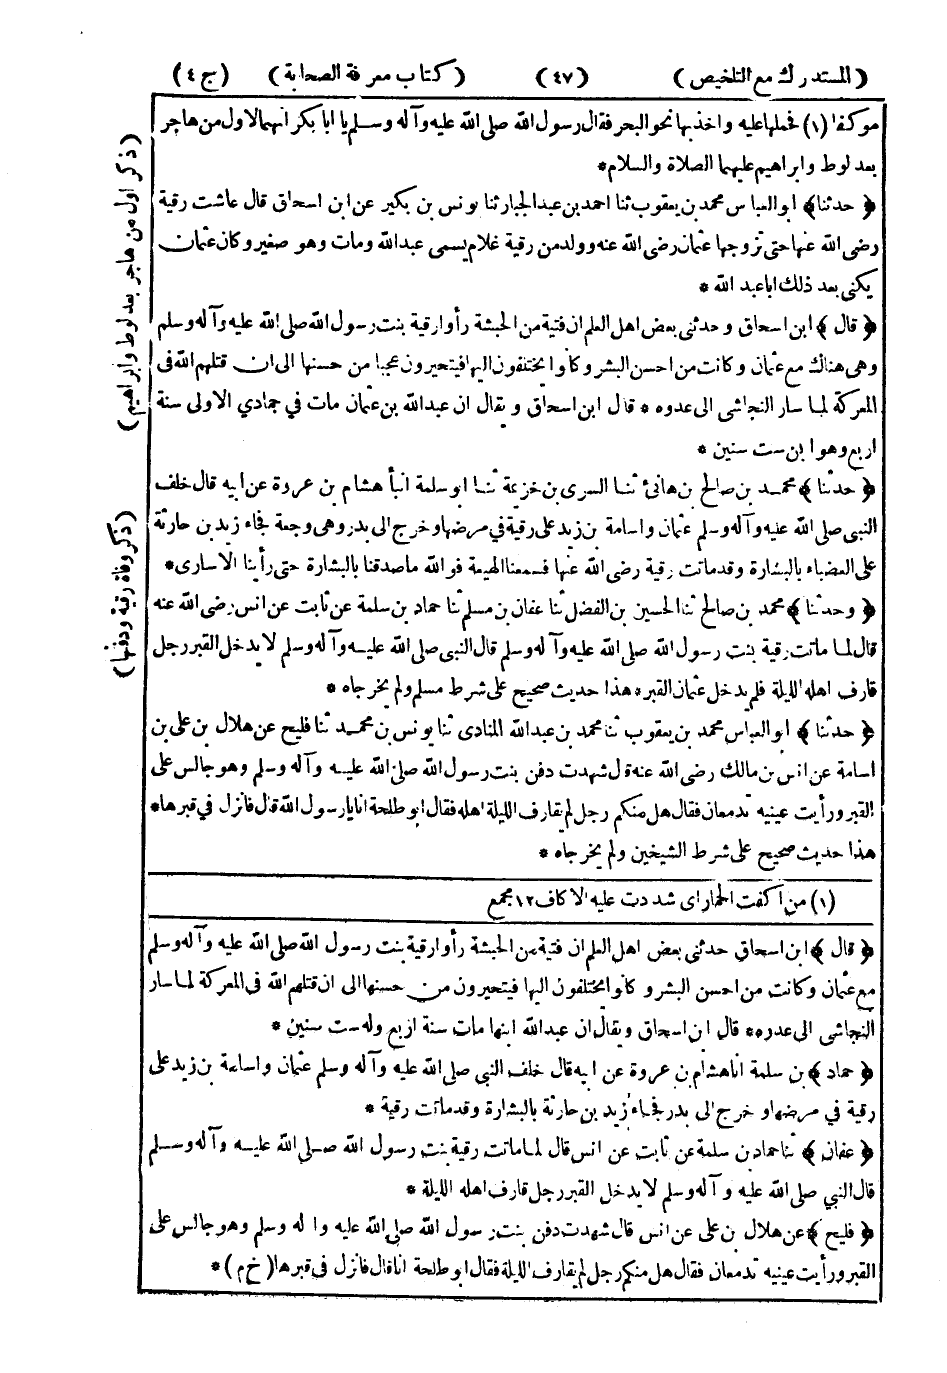 (المستدرك مع التلخيص) (٤٧) (كتاب معرفة الصحابة) (ج ٤)
موكفا (١) فحملها عليه واخذ بها نحو البحر فقال رسول الله صلى الله عليه وآله وسلم يا ابا بكر انهما لاول من هاجر
بعد لوط وابراهيم عليهما الصلاة والسلام*
﴿ حدثنا﴾ ابو العباس محمد بن يعقوب ثنا احمد بن عبد الجبار ثنا يونس بن بكير عن ابن اسحاق قال عاشت رقية
رضى الله عنها حتى تزوجها عثمان رضى الله عنه وولد من رقية غلام يسمى عبد الله ومات وهو صغير وكان عثمان
يكنى بعد ذلك ابا عبد الله *
﴿ قال ﴾ ابن اسحاق وحدثنى بعض اهل العلم ان فتية من الحبشة رأوا رقية بنت رسول الله صلى الله عليه وآله وسلم
وهى هناك مع عثمان وكانت من احسن البشر وكانوا يختلفون اليها فيتحيرون عجبا من حسنها الى ان قتلهم الله فى
المعركة لما سار النجاشى الى عدوه * قال ابن اسحاق ويقال ان عبد الله بن عثمان مات في جمادي الاولى سنة
اربع وهو ابن ست سنين *
﴿ حدثنا ﴾ محمد بن صالح بن هانئ ثنا السرى بن خزيمة ثنا ابو سلمة انبأ هشام بن عروة عن ابيه قال خلف
النبى صلى الله عليه وآله وسلم عثمان واسامة بن زيد على رقية في مرضها وخرج الى بدر وهى وجعة فجاء زيد بن حارثة
على العضباء بالبشارة وقد ماتت رقية رضى الله عنها فسمعنا الهيعة فوالله ما صدقنا بالبشارة حتى رأينا الاسارى*
﴿ وحدثنا ﴾ محمد بن صالح ثنا الحسين بن الفضل ثنا عفان بن مسلم ثنا حماد بن سلمة عن ثابت عن انس رضى الله عنه
قال لما ماتت رقية بنت رسول الله صلى الله عليه وآله وسلم قال النبى صلى الله عليه وآله وسلم لا يدخل القبر رجل
قارف اهله الليلة فلم يدخل عثمان القبر * هذا حديث صحيح على شرط مسلم ولم يخرجاه *
﴿ حدثنا ﴾ ابو العباس محمد بن يعقوب ثنا محمد بن عبد الله المنادى ثنا يونس بن محمد ثنا فليح عن هلال بن على بن
اسامة عن انس بن مالك رضى الله عنه قال شهدت دفن بنت رسول الله صلى الله عليه وآله وسلم وهو جالس على
القبر ورأيت عينيه تدمعان فقال هل منكم رجل لم يقارف الليلة اهله فقال ابو طلحة انا يا رسول الله قال فانزل في قبرها*
هذا حديث صحيح على شرط الشيخين ولم يخرجاه *
(١) من اكفت الحمار اى شددت عليه الاكاف ١٢ مجمع
﴿ قال ﴾ ابن اسحاق حدثنى بعض اهل العلم ان فتية من الحبشة رأوا رقية بنت رسول الله صلى الله عليه وآله وسلم
مع عثمان وكانت من احسن البشر وكانوا يختلفون اليها فيتحيرون من حسنها الى ان قتلهم الله فى المعركة لما سار
النجاشى الى عدوه* قال ابن اسحاق ويقال ان عبد الله ابنها مات سنة اربع وله ست سنين *
﴿ حماد ﴾ بن سلمة انا هشام بن عروة عن ابيه قال خلف النبي صلى الله عليه وآله وسلم عثمان واسامة بن زيد على
رقية في مرضها وخرج الى بدر فجاء زيد بن حارثة بالبشارة وقد ماتت رقية *
﴿ عفان ﴾ ثنا حماد بن سلمة عن ثابت عن انس قال لما ماتت رقية بنت رسول الله صلى الله عليه وآله وسلم
قال النبي صلى الله عليه وآله وسلم لا يدخل القبر رجل قارف اهله الليلة *
﴿ فليح ﴾ عن هلال بن على عن انس قال شهدت دفن بنت رسول الله صلى الله عليه وآله وسلم وهو جالس على
القبر ورأيت عينيه تدمعان فقال هل منكم رجل لم يقارف الليلة فقال ابو طلحة انا قال فانزل فى قبرها (خ م) *
(ذكر اول من هاجر بعد لوط وابراهيم)
(ذكر وفاة رقية ودفنها)